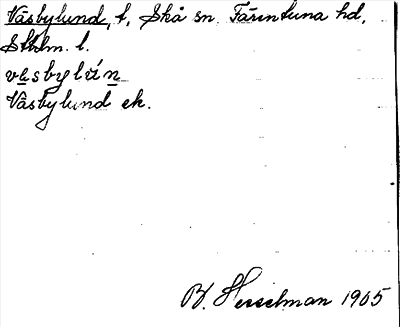 Väsbylund, t, Skå sn Färentuna hd,
Sthlm. l.
väsbylún
Väsbylund ek.
B. Hesselman 1905